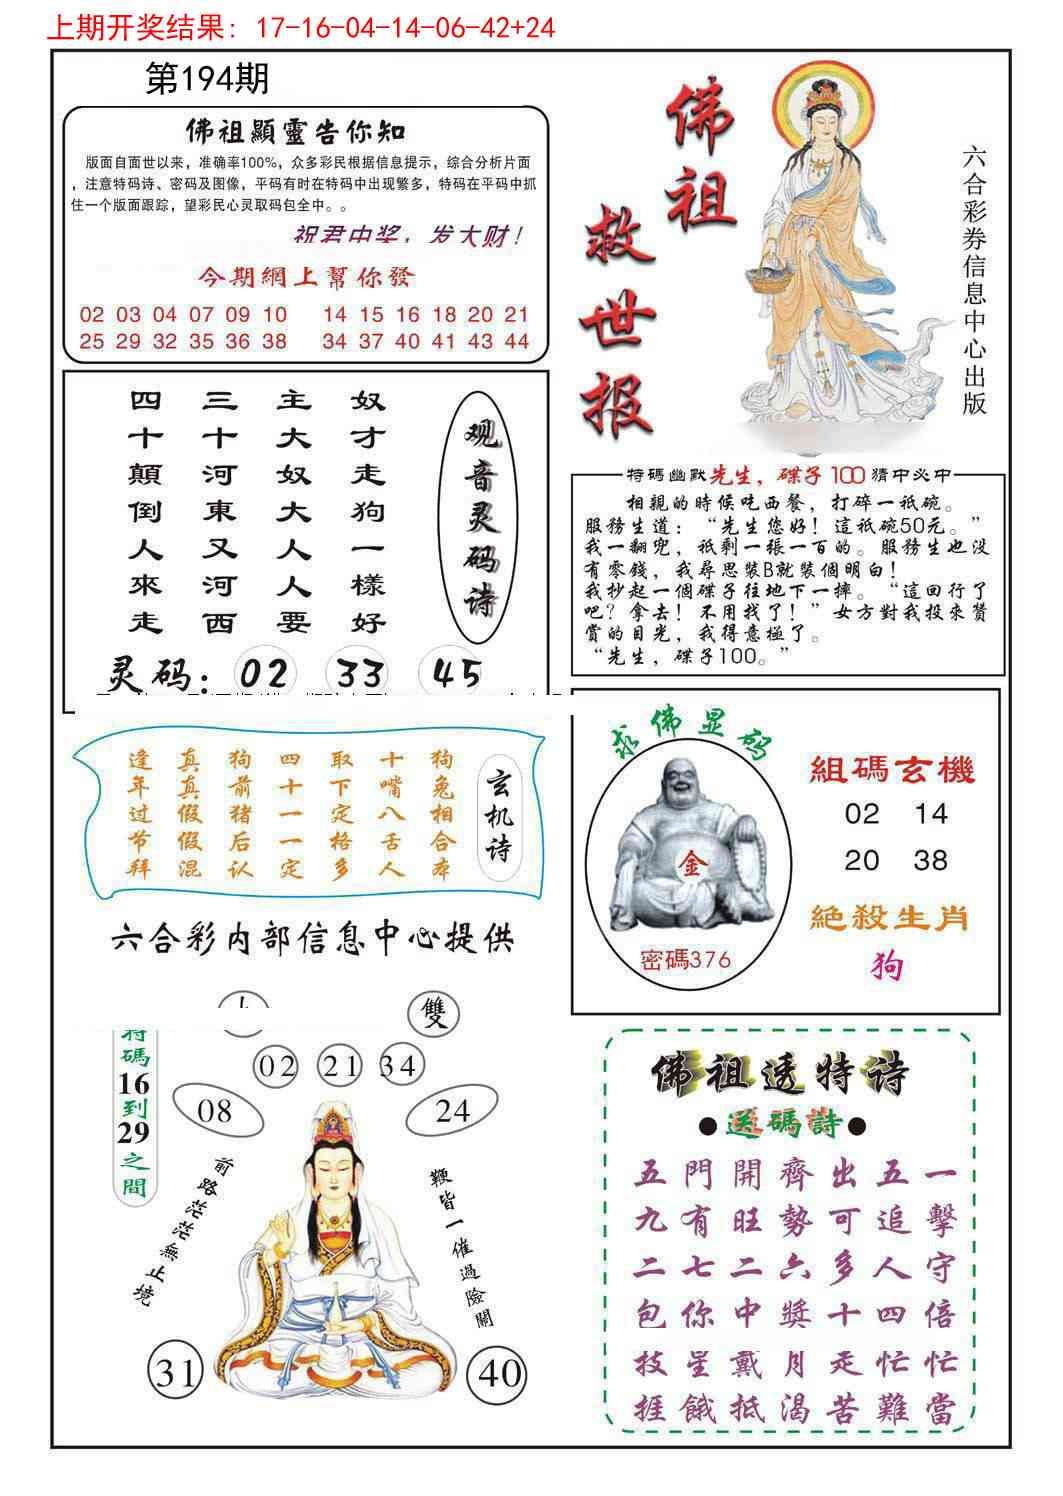 上期开奖结果: 17-16-04-14-06-42+24
第194期
佛祖顯靈告你知
版面自面世以来，准确率100%，众多彩民根据信息提示，综合分析片面
，注意特码诗、密码及图像，平码有时在特码中出现繁多，特码在平码中抓
住一个版面跟踪，望彩民心灵取码包全中。。
祝君中奖，发大财！
今期網上幫你發
02 03 04 07 09 10 14 15 16 18 20 21
25 29 32 35 36 38 34 37 40 41 43 44
佛祖
救世报
六合彩券信息中心出版
观音灵码诗
奴才走狗一樣好
主大奴大人人要
三十河東又河西
四十顛倒人來走
灵码: 02 33 45
特碼幽默先生，碟子100猜中必中
相親的時候吃西餐，打碎一衹碗。
服務生道：“先生您好！這衹碗50元。”
我一翻兜，衹剩一張一百的。服務生也没
有零錢，我尋思裝B就裝個明白！
我抄起一個碟子往地下一摔。“這回行了
吧？拿去！不用找了！”女方對我投來贊
賞的目光，我得意極了。
“先生，碟子100。”
玄机诗
狗兔相合本
十嘴八舌人
取下定格多
四十一一定
狗前猪后认
真真假假混
逢年过节拜
六合彩内部信息中心提供
求佛显码
金
密碼376
組碼玄機
02 14
20 38
絕殺生肖
狗
雙
02 21 34
08 24
特碼16到29之間
前路茫茫無止境
鞭皆一催過險關
31 40
佛祖透特诗
●送碼詩●
五門開齊出五一
九有旺勢可追擊
二七二六多人守
包你中獎十四倍
技星戴月走忙忙
捱餓抵渴苦難當